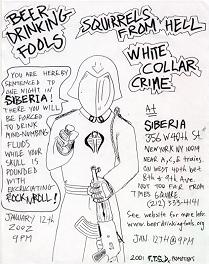 BEER
DRINKING
FOOLS
SQUIRRELS
FROM HELL
WHITE
COLLAR
CRIME
YOU ARE HEREBY
SENTENCED TO
ONE NIGHT IN
SIBERIA!
THERE YOU WILL
BE FORCED
TO DRINK
MIND-NUMBING
FLUIDS
WHILE YOUR
SKULL IS
POUNDED
WITH
EXCRUCIATING
ROCK N ROLL!
JANUARY 12th
2002
9 PM
At
SIBERIA
356 W 40th St
NEW YORK NY 10019
NEAR A,C,E trains.
ON WEST 40th bet
8th + 9th AVES.
NOT TOO FAR FROM
TIMES SQUARE
(212) 333-4141
See website for more info.
www.beerdrinkingfools.org
JAN. 12TH @ 9PM
2001